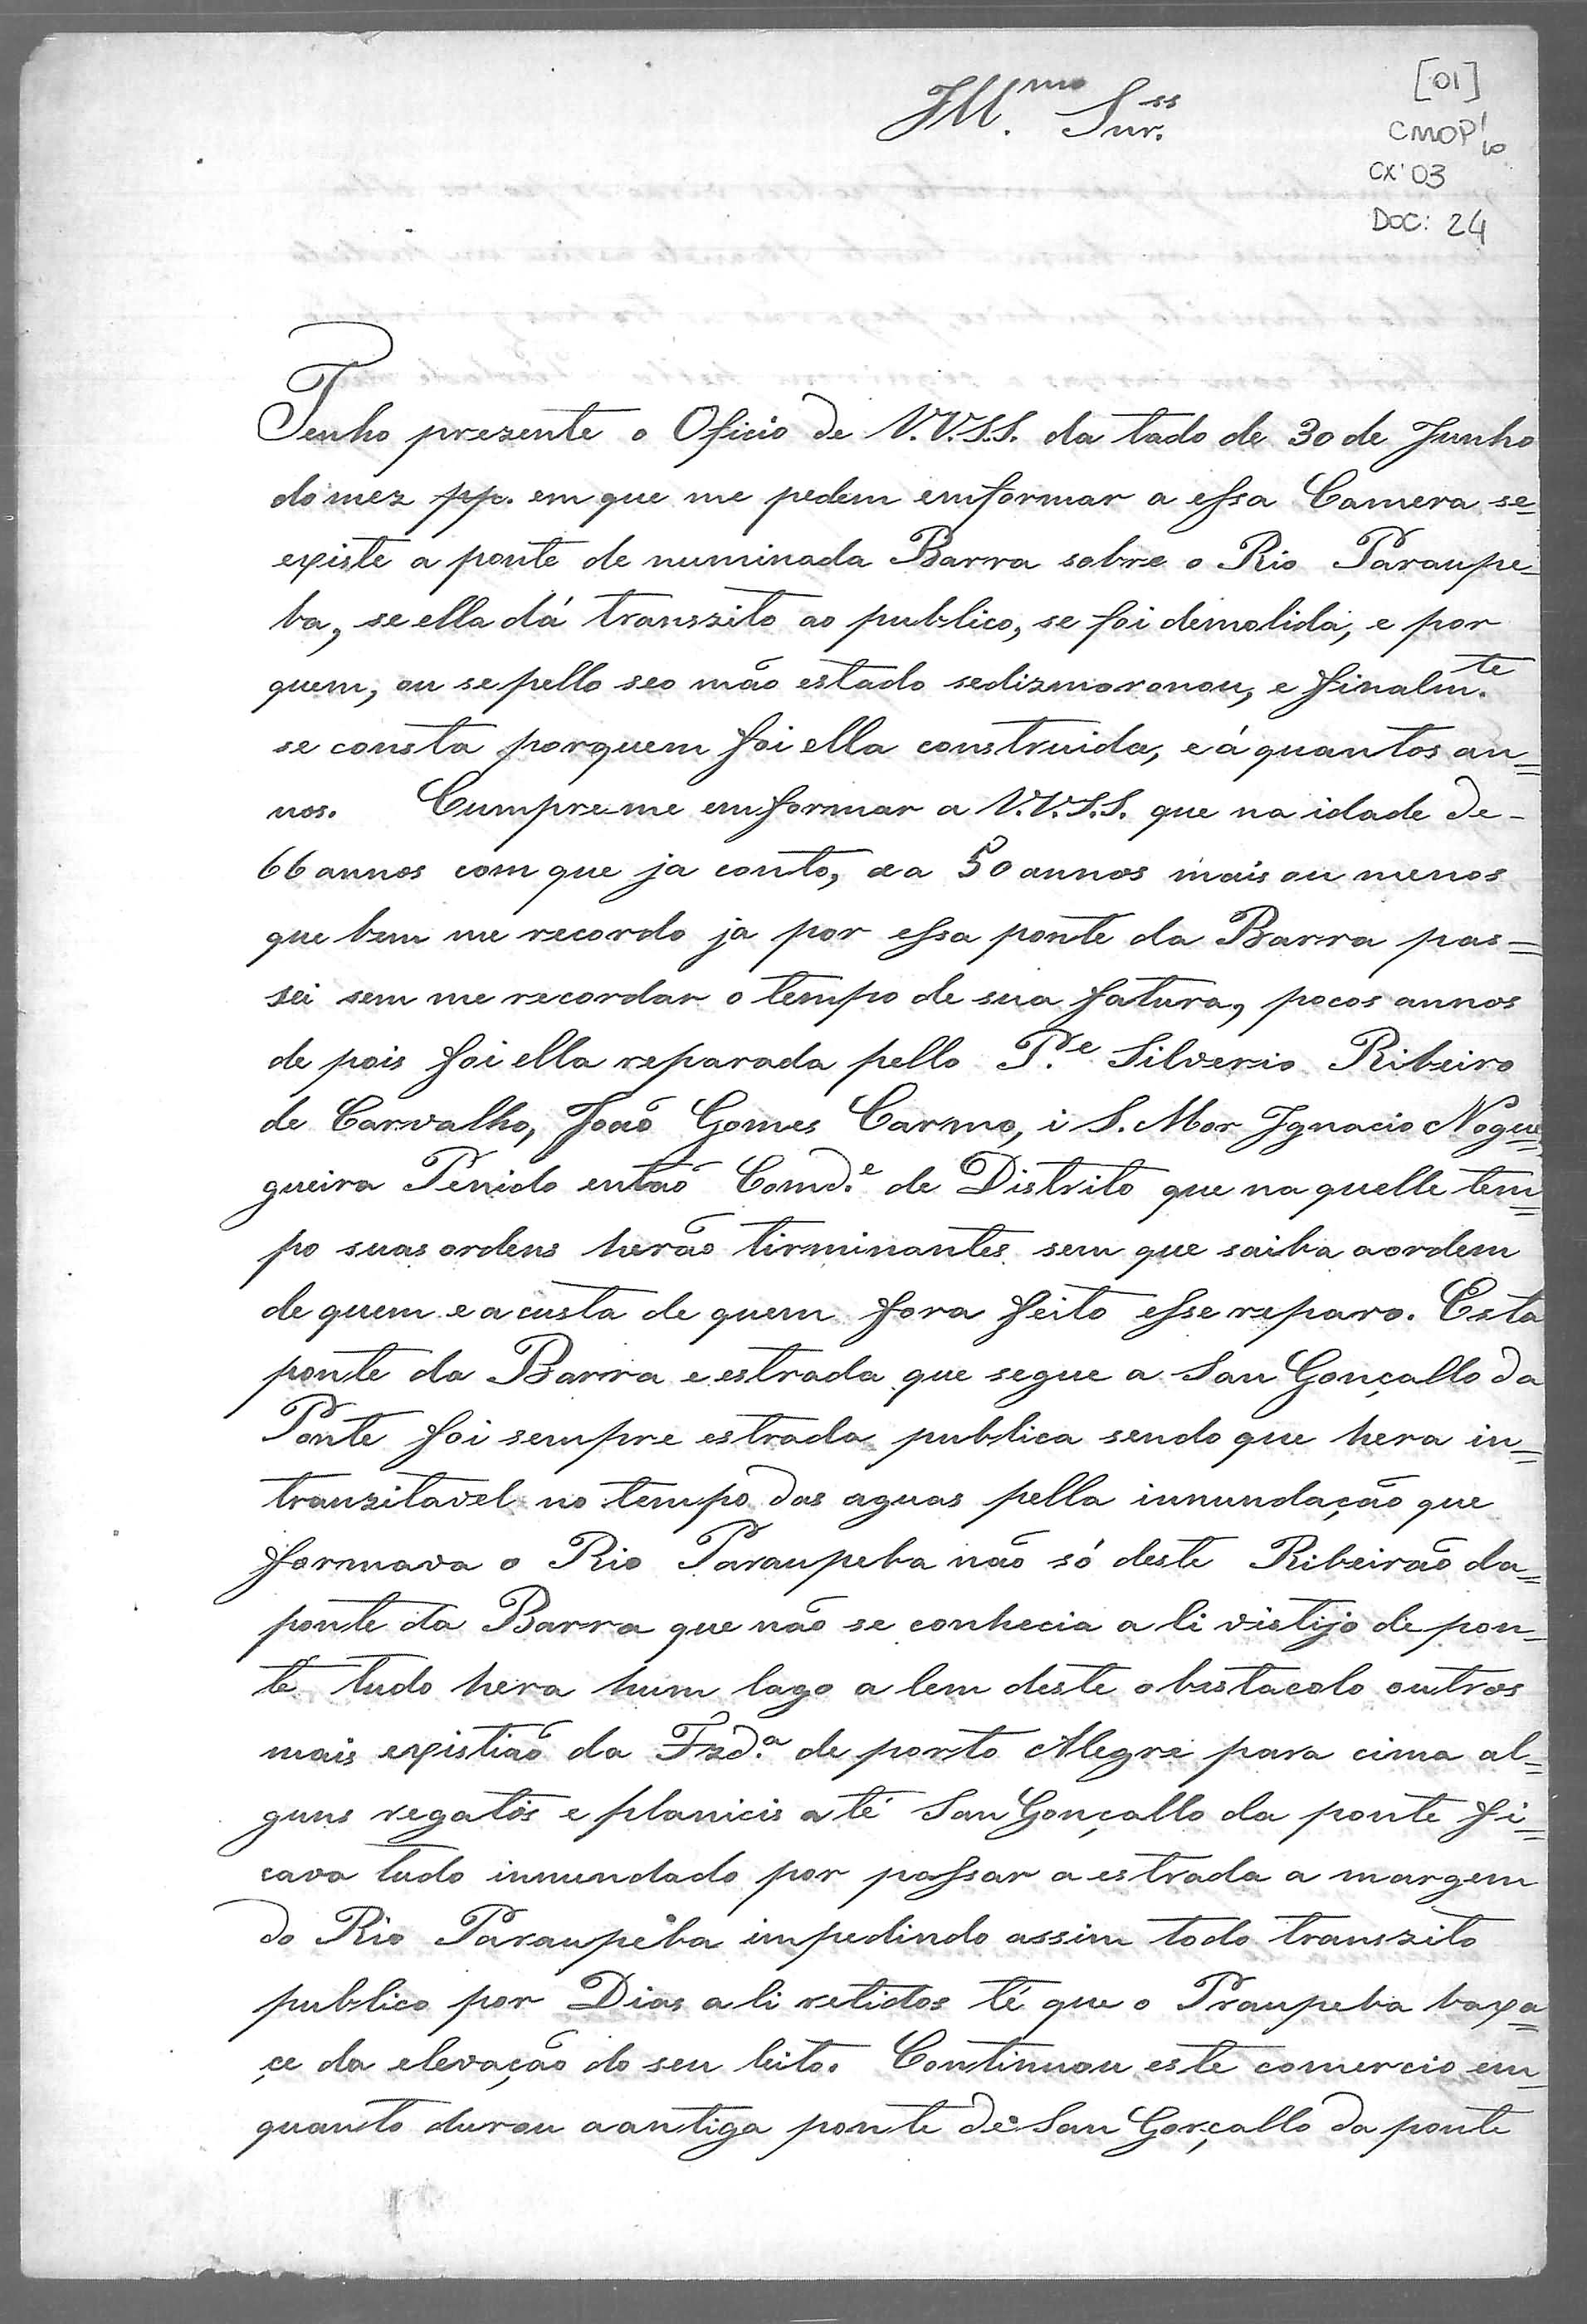 Ill.mo Snr.ss
[01]
CMOP 1/10
CX 03
DOC: 24
Tenho prezente o Oficio de V.V.S.S. da tado de 30 de Junho
do mez pp. em que me pedem emformar a essa Camera se
existe a ponte de numinada Barra sobre o Rio Paraupe-
ba, se ella dá transzito ao publico, se foi demolida, e por
quem, ou se pello seo máo estado sedizmoronou, e finalm.te
se consta porquem foi ella construida, e á quantos an=
nos. Cumpre-me emformar a V.V.S.S. que na idade de-
66 annos com que ja conto, e a 50 annos mais ou menos
que bem me recordo ja por essa ponte da Barra pas=
sei sem me recordar o tempo de sua fatura, pocos annos
de pois foi ella reparada pello P.e Silverio Ribeiro
de Carvalho, João Gomes Carmo, i S. Mor Ignacio Nogue=
gueira Penido então Comd.e de Distrito que na quelle tem=
po suas ordens herão tirminantes sem que saiba a ordem
de quem e a custa de quem fora feito esse reparo. Esta
ponte da Barra e estrada que segue a San Gonçallo da
Ponte foi sempre estrada publica sendo que hera in=
tranzitavel no tempo das aguas pella innundação que
formava o Rio Paraupeba não só deste Ribeirão da=
ponte da Barra que não se conhecia a li vistijo de pon-
te tudo hera hum lago a lem deste obustacolo outros
mais existião da Fzd.a de porto Alegre para cima al=
guns regatos e planicis a té San Gonçallo da ponte fi=
cava tudo innundado por passar a estrada a margem
do Rio Paraupeba impedindo assim todo transzito
publico por Dias a li retidos té que o Praupeba baxa=
çe da elevação do seu leito. Continuou este comercio em-
quanto durou a antiga ponte de San Gorçallo da ponte